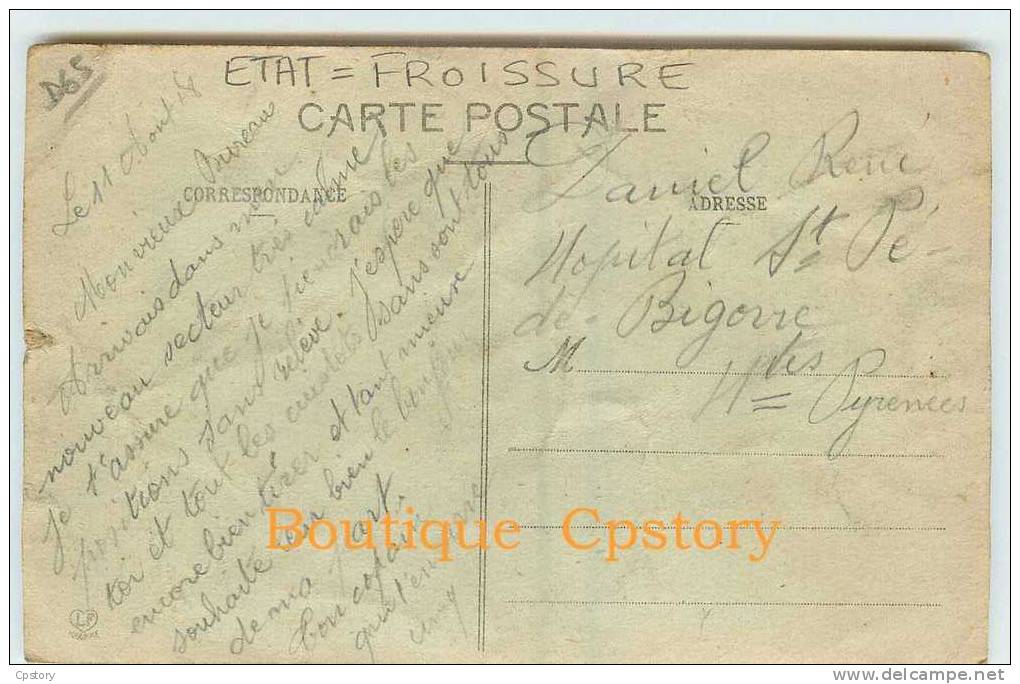 D65
ETAT = FROISSURE
CARTE POSTALE
CORRESPONDANCE
ADRESSE
Le 11 Aout 18
Mon vieux
Arrivais dans mon
nouveau secteur très calme
Je t'assure que je tiendrais les
positions sans relève. J'espère que
toi et tout les sont tous
encore bien tirer et tant mieux
souhaite
de ma part
bon copain
qui t'en
Daniel René
Hopital St Pé-
de-Bigorre
M
Htes Pyrenées
Boutique Cpstory
Cpstory
delcampe.net